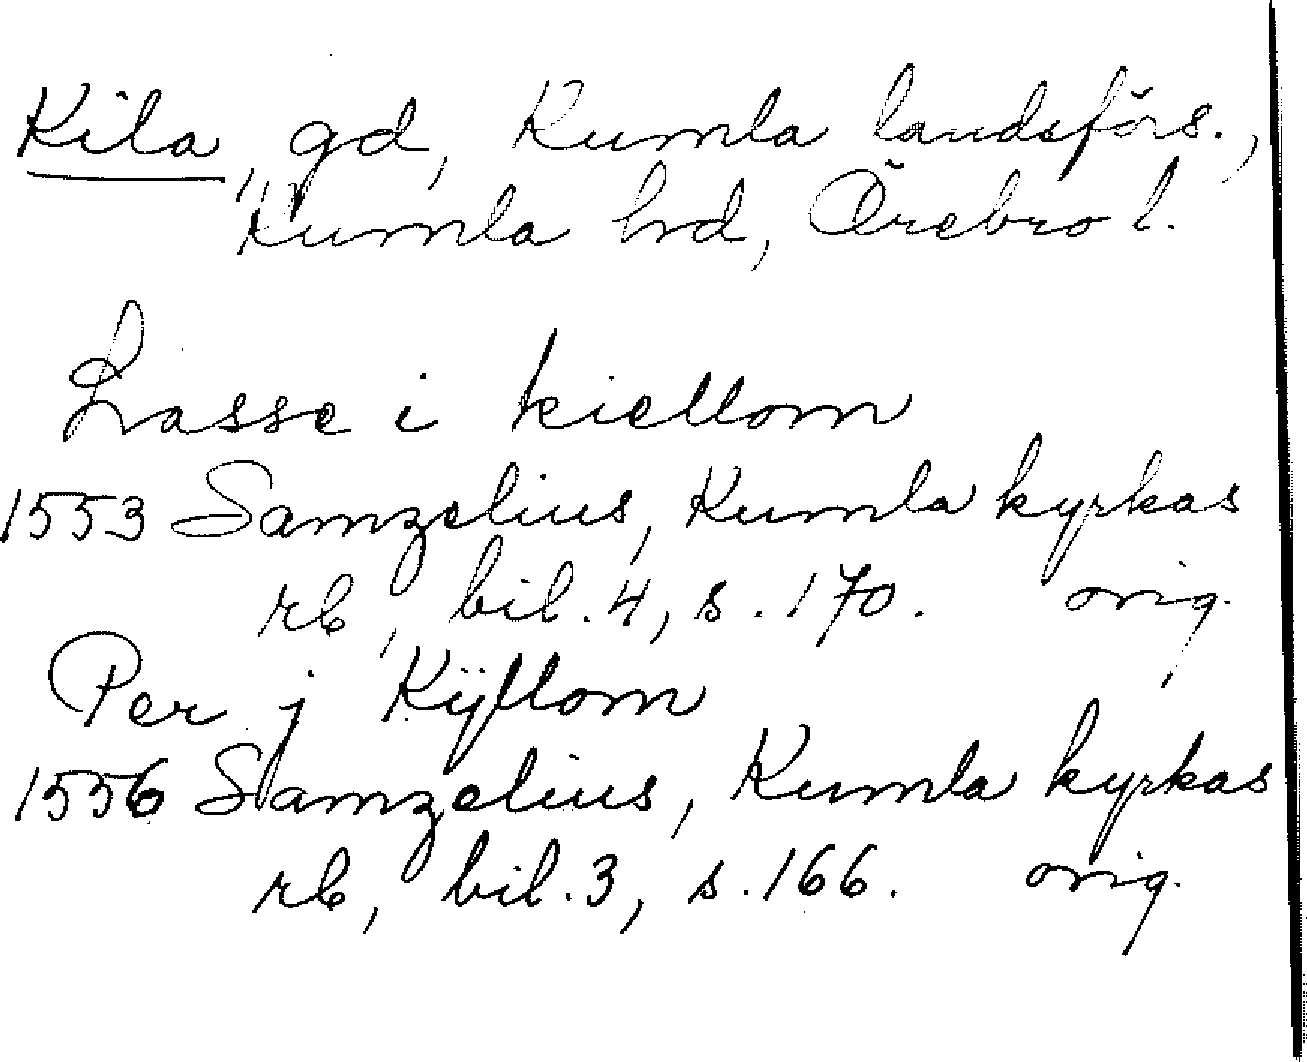 Kila, gd, Kumla landsförs.,
Kumla hd, Örebro l.
Lasse i kiellom
1553 Samzelius, Kumla kyrkas
rb, bil. 4, s. 170. orig.
Per j Kÿllom
1556 Samzelius, Kumla kyrkas
rb, bil. 3, s. 166. orig.